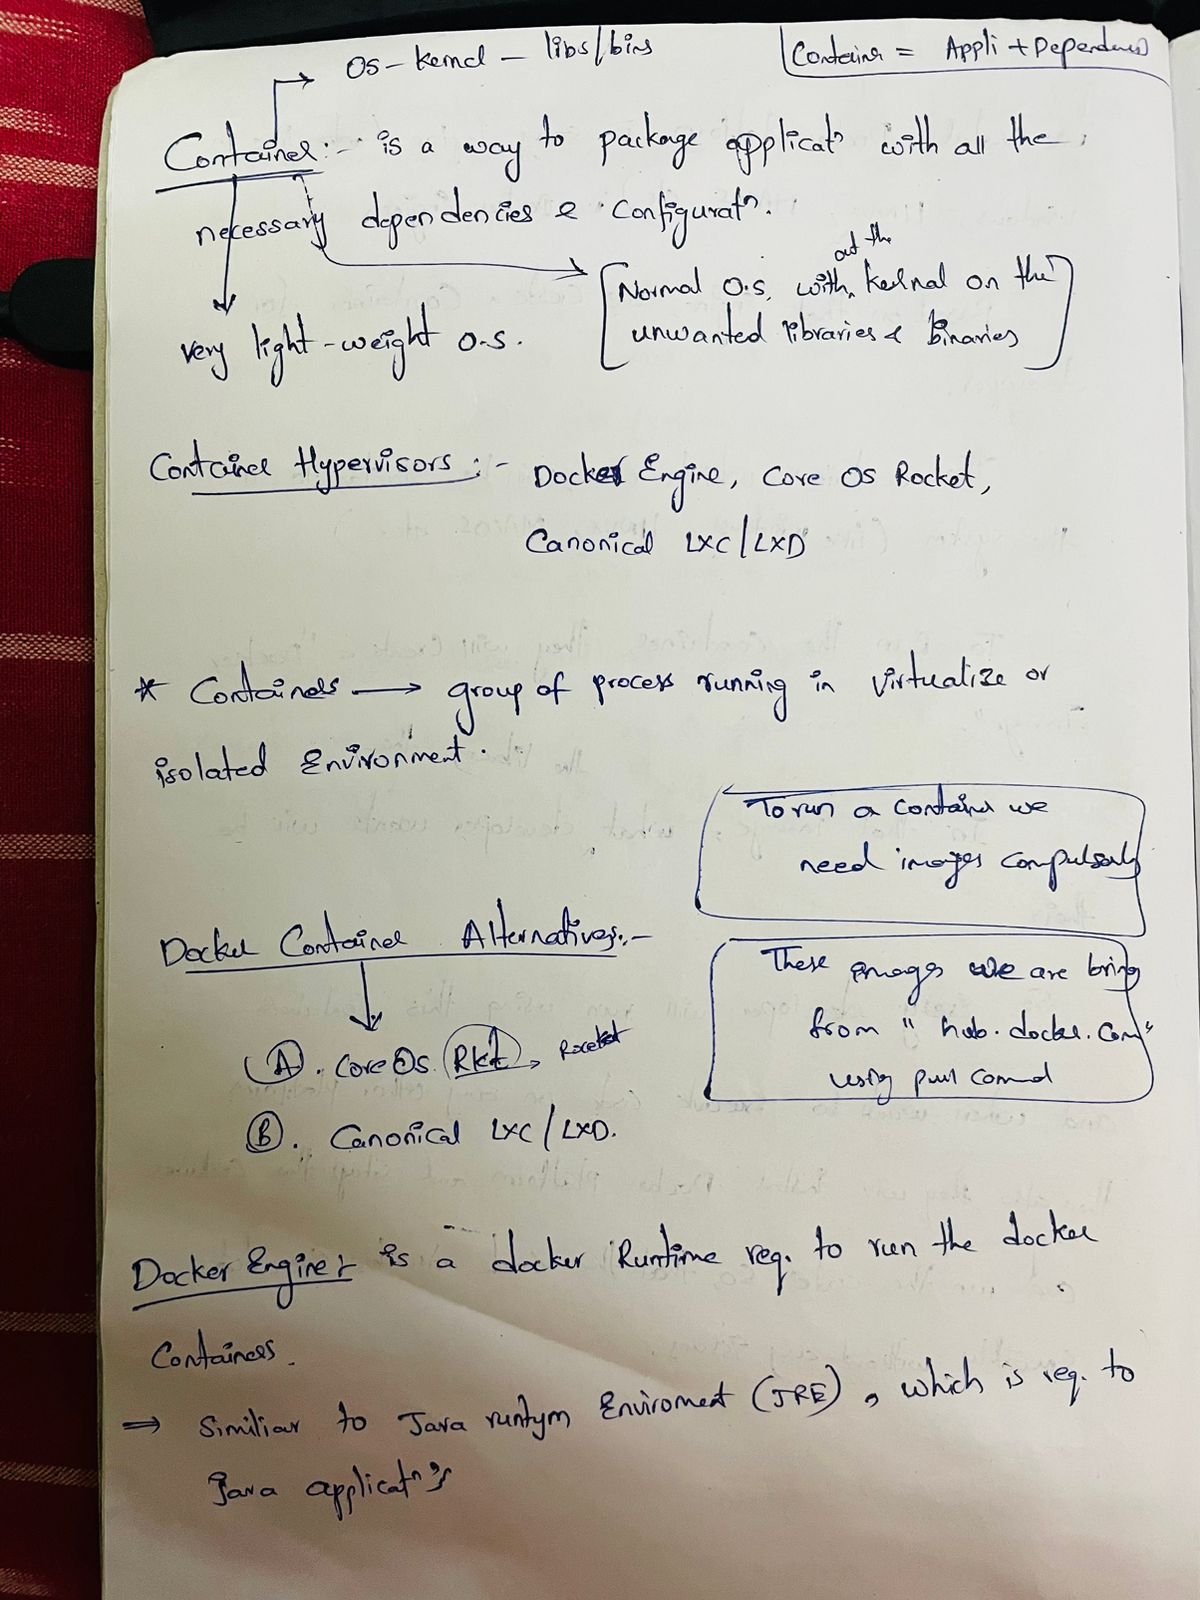 OS - kernel - libs/bins
Container = Appli + Dependences
Container :- is a way to package applicatn with all the
necessary dependencies & Configuratn.
very light-weight O.S.
out the
Normal O.S. with kernal on the
unwanted libraries & Binaries
Container Hypervisors :- Docker Engine, Core OS Rocket,
Canonical LXC/LXD
* Containers → group of process running in Virtualize or
isolated Environment.
To run a container we
need images compulsarly
Docker Container Alternatives:-
These images we are bring
from "hub.docker.com"
using pull command
A. Core OS. Rkt → Rocket
B. Canonical LXC/LXD.
Docker Engine :- is a docker Runtime req. to run the docker
Containers.
⇒ Similiar to Java runtym Enviroment (JRE), which is req. to
Java applicatn's